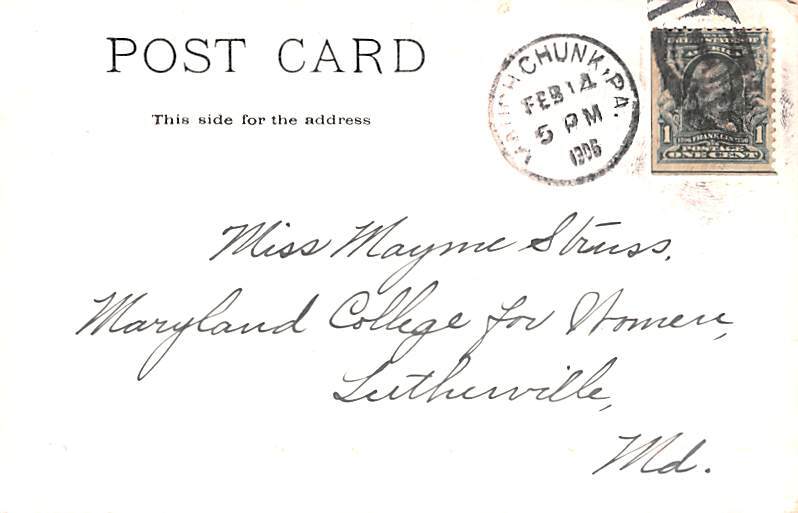 POST CARD
This side for the address
MAUCH CHUNK, PA.
FEB 14
5 PM
1906
UNITED STATES OF
AMERICA
FRANKLIN
1 POSTAGE 1
ONE CENT
Miss Mayme Struss,
Maryland College for Women,
Lutherville,
Md.